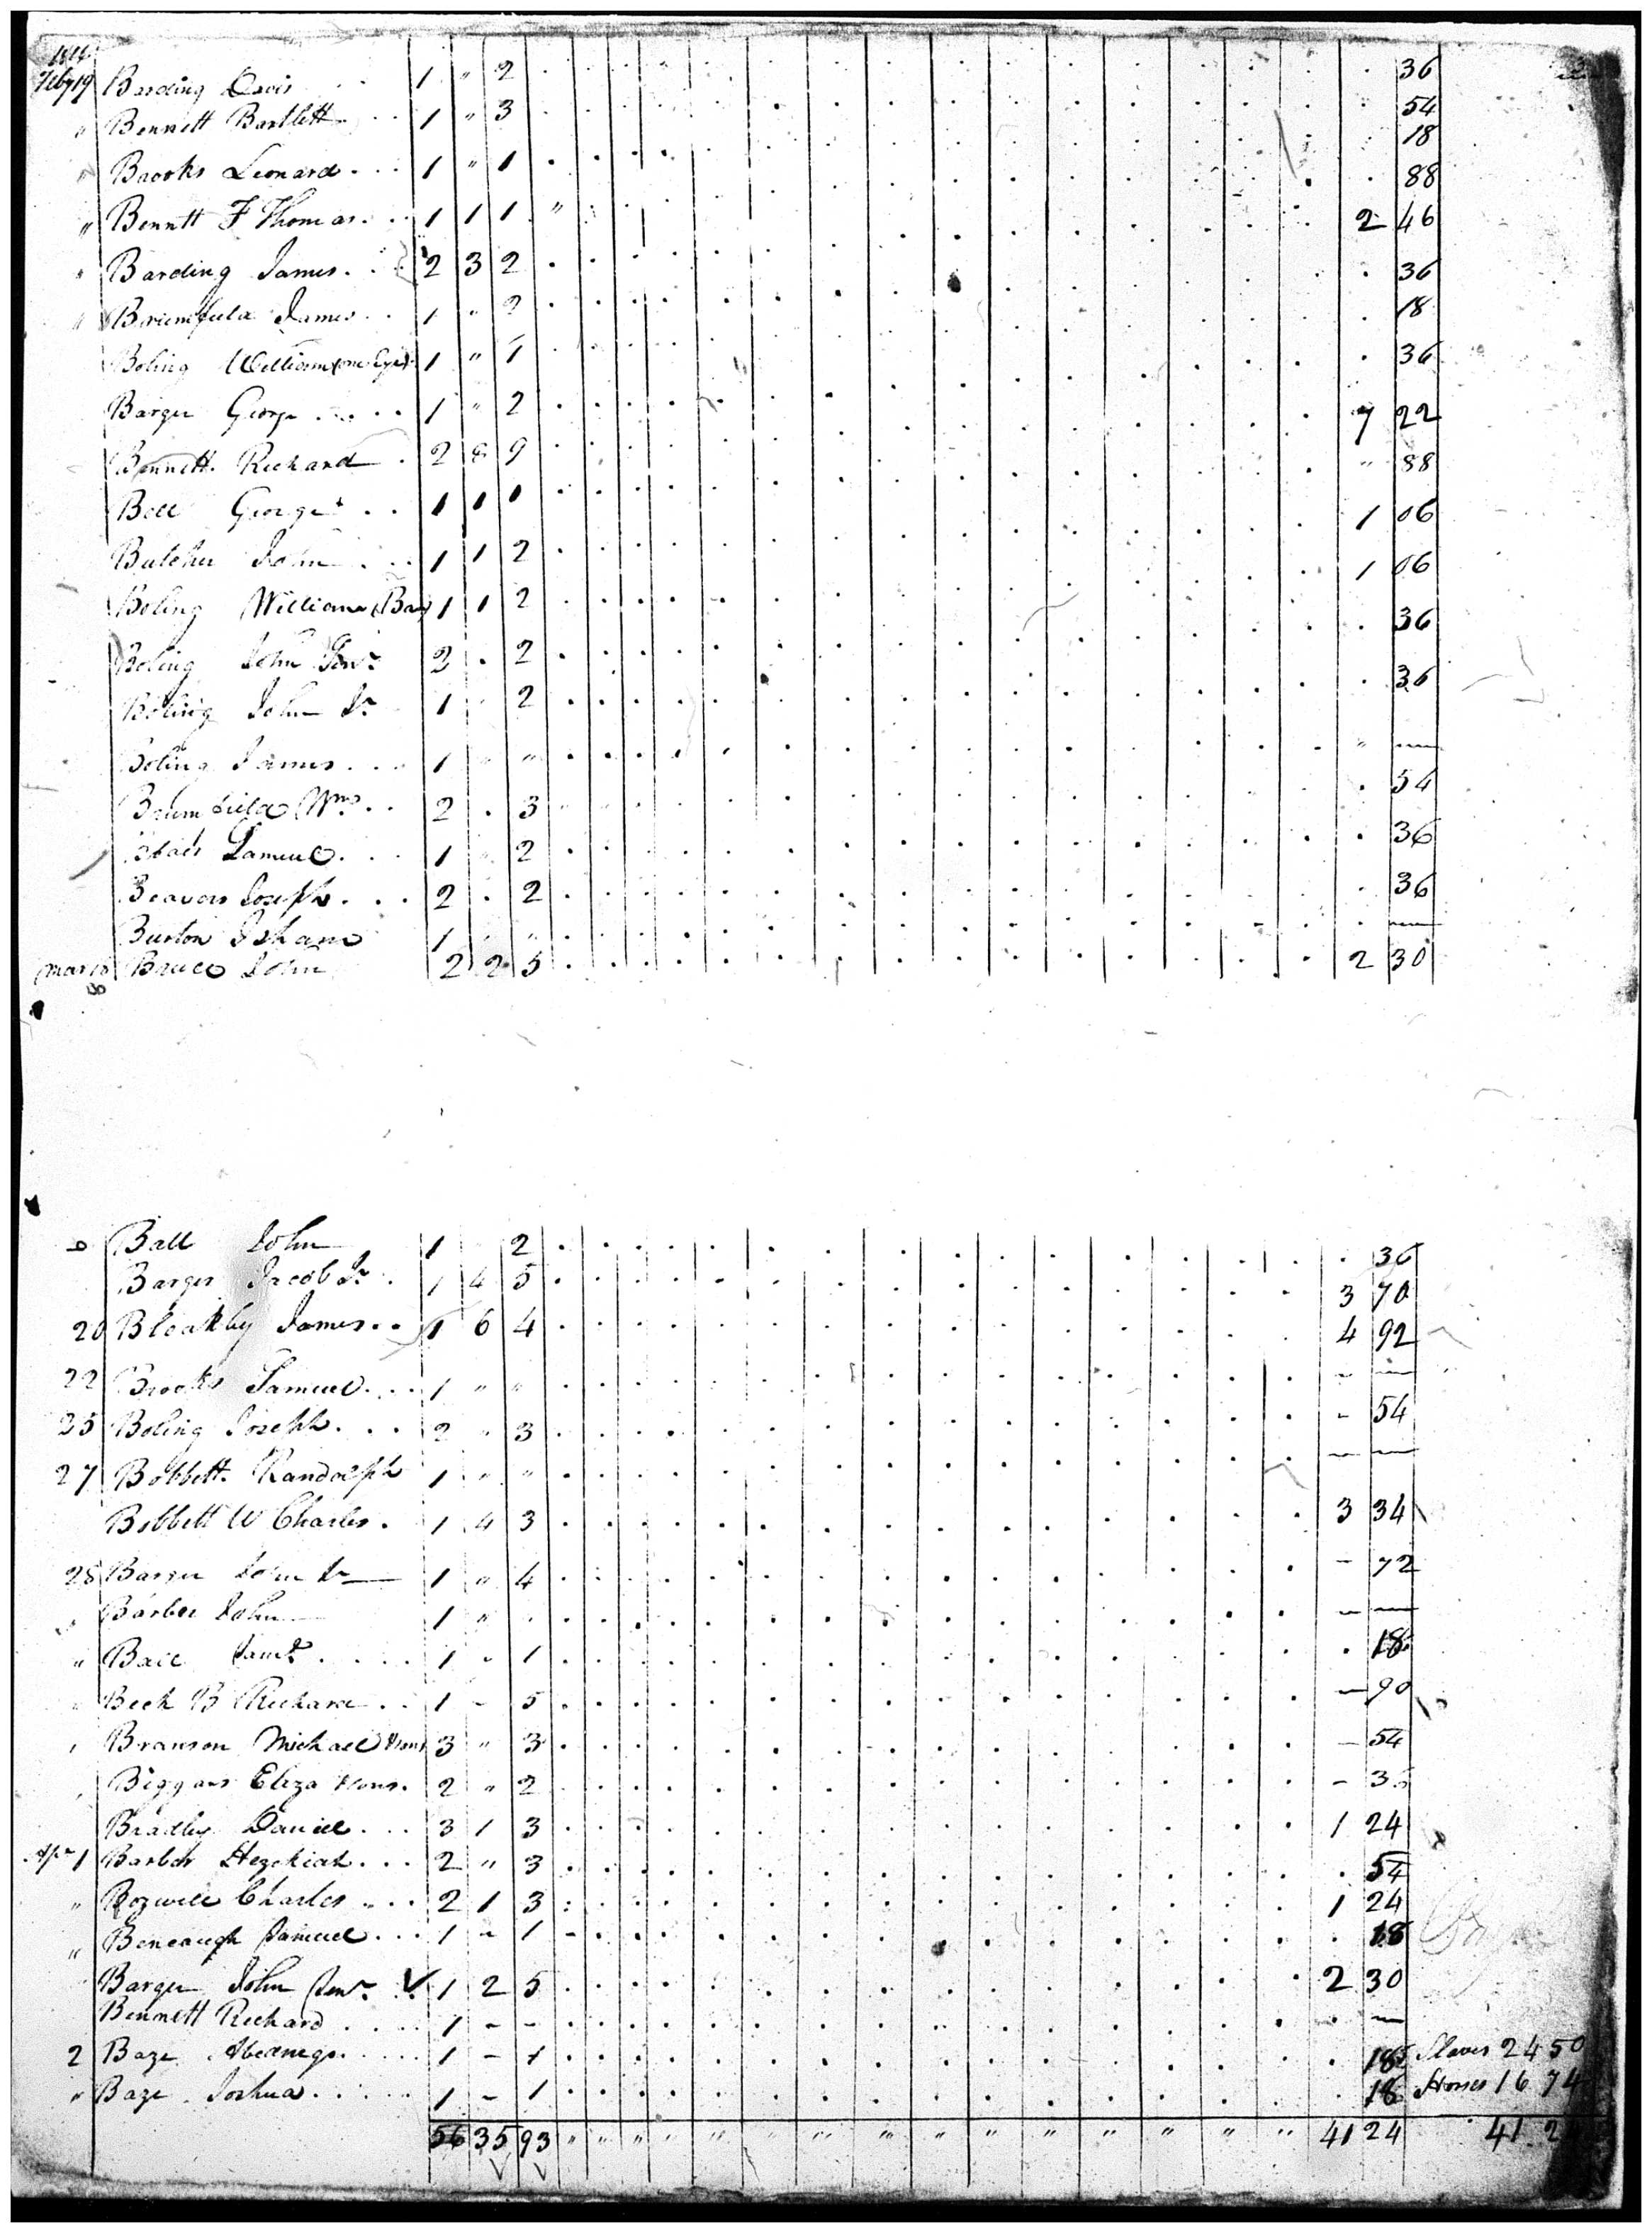 1814
Feby 19 Barding Davis 1 " 2 36
" Bennett Bartlett 1 " 3 54
" Baooks Leonard 1 " 1 18
" Bennett F Thomas 1 1 1 " 88
" Barding James 2 3 2 2 46
" Brumfield James 1 " 2 36
Boling William (one Eye) 1 " 1 18
Barger George 1 " 2 36
Bennett Richard 2 8 9 7 22
Bell George 1 1 1 " 88
Butcher John 1 1 2 1 06
Boling William (Bar) 1 1 2 1 06
Boling John Senr 2 . 2 36
Boling John Jr 1 2 36
Boling James 1 " " " —
Brumfield Wm 2 . 3 54
Samuel 1 " 2 36
Beavers Joseph 2 . 2 36
Burton Isham 1 " " —
March Bruce John 2 2 5 2 30
Ball John 1 2 36
Barger Jacob Jr 1 4 5 3 70
20 Bleakly James 1 6 4 4 92
22 Brooks Samuel 1 " " — —
25 Boling Joseph 2 " 3 - 54
27 Bobbett Randolph 1 " " — —
Bobbett W Charles 1 4 3 3 34
28 Barger John Jr 1 " 4 - 72
" Barbee John 1 " — —
" Bail Saml 1 - 1 18
" Beck B Richard 1 - 5 — 90
" Branson Michael 3 " 3 — 54
" Biggars Eliza 2 " 2 - 36
Bradley Daniel 3 1 3 1 24
Apr 1 Barbor Hezekiah 2 " 3 54
" Bozwell Charles 2 1 3 1 24
" Beneaugh Samuel 1 - 1 18
Barger John Senr V 1 2 5 2 30
Bennett Richard 1 - - —
2 Baze Abednego 1 - 1 18 Slaves 24 50
" Baze Joshua 1 - 1 18 Horses 16 74
56 35 93 " " " " " " " " " " " " " " 41 24 41 24